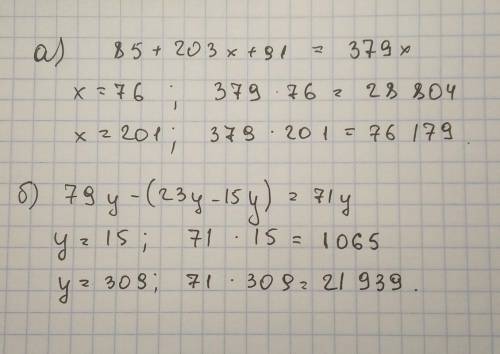 а) 85 + 203x + 91 = 379x
x = 76 ; 379 · 76 = 28 804
x = 201 ; 379 · 201 = 76 179.
б) 79y - (23y - 15y) = 71y
y = 15 ; 71 · 15 = 1065
y = 309 ; 71 · 309 = 21 939.